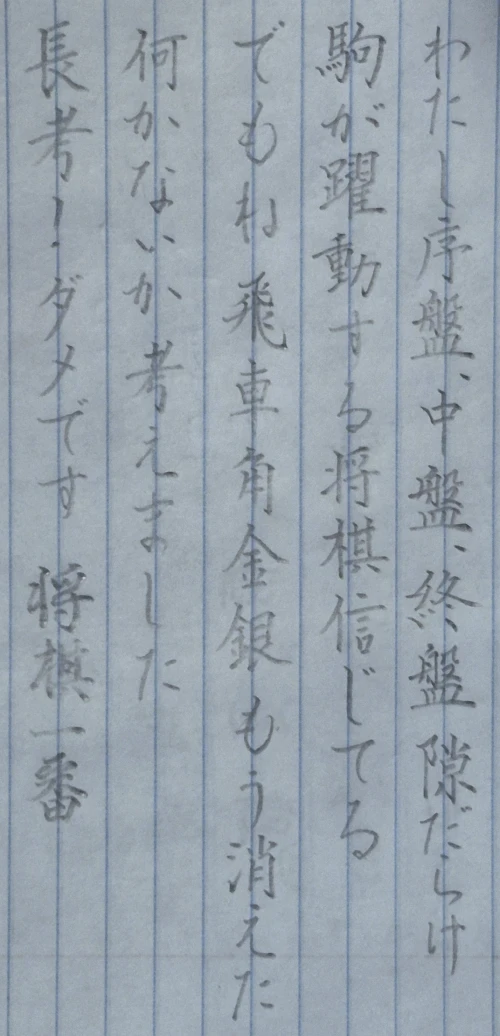 わたし序盤、中盤、終盤隙だらけ
駒が躍動する将棋信じてる
でもね 飛車角金銀もう消えた
何かないか 考えました
長考！ダメです 将棋一番